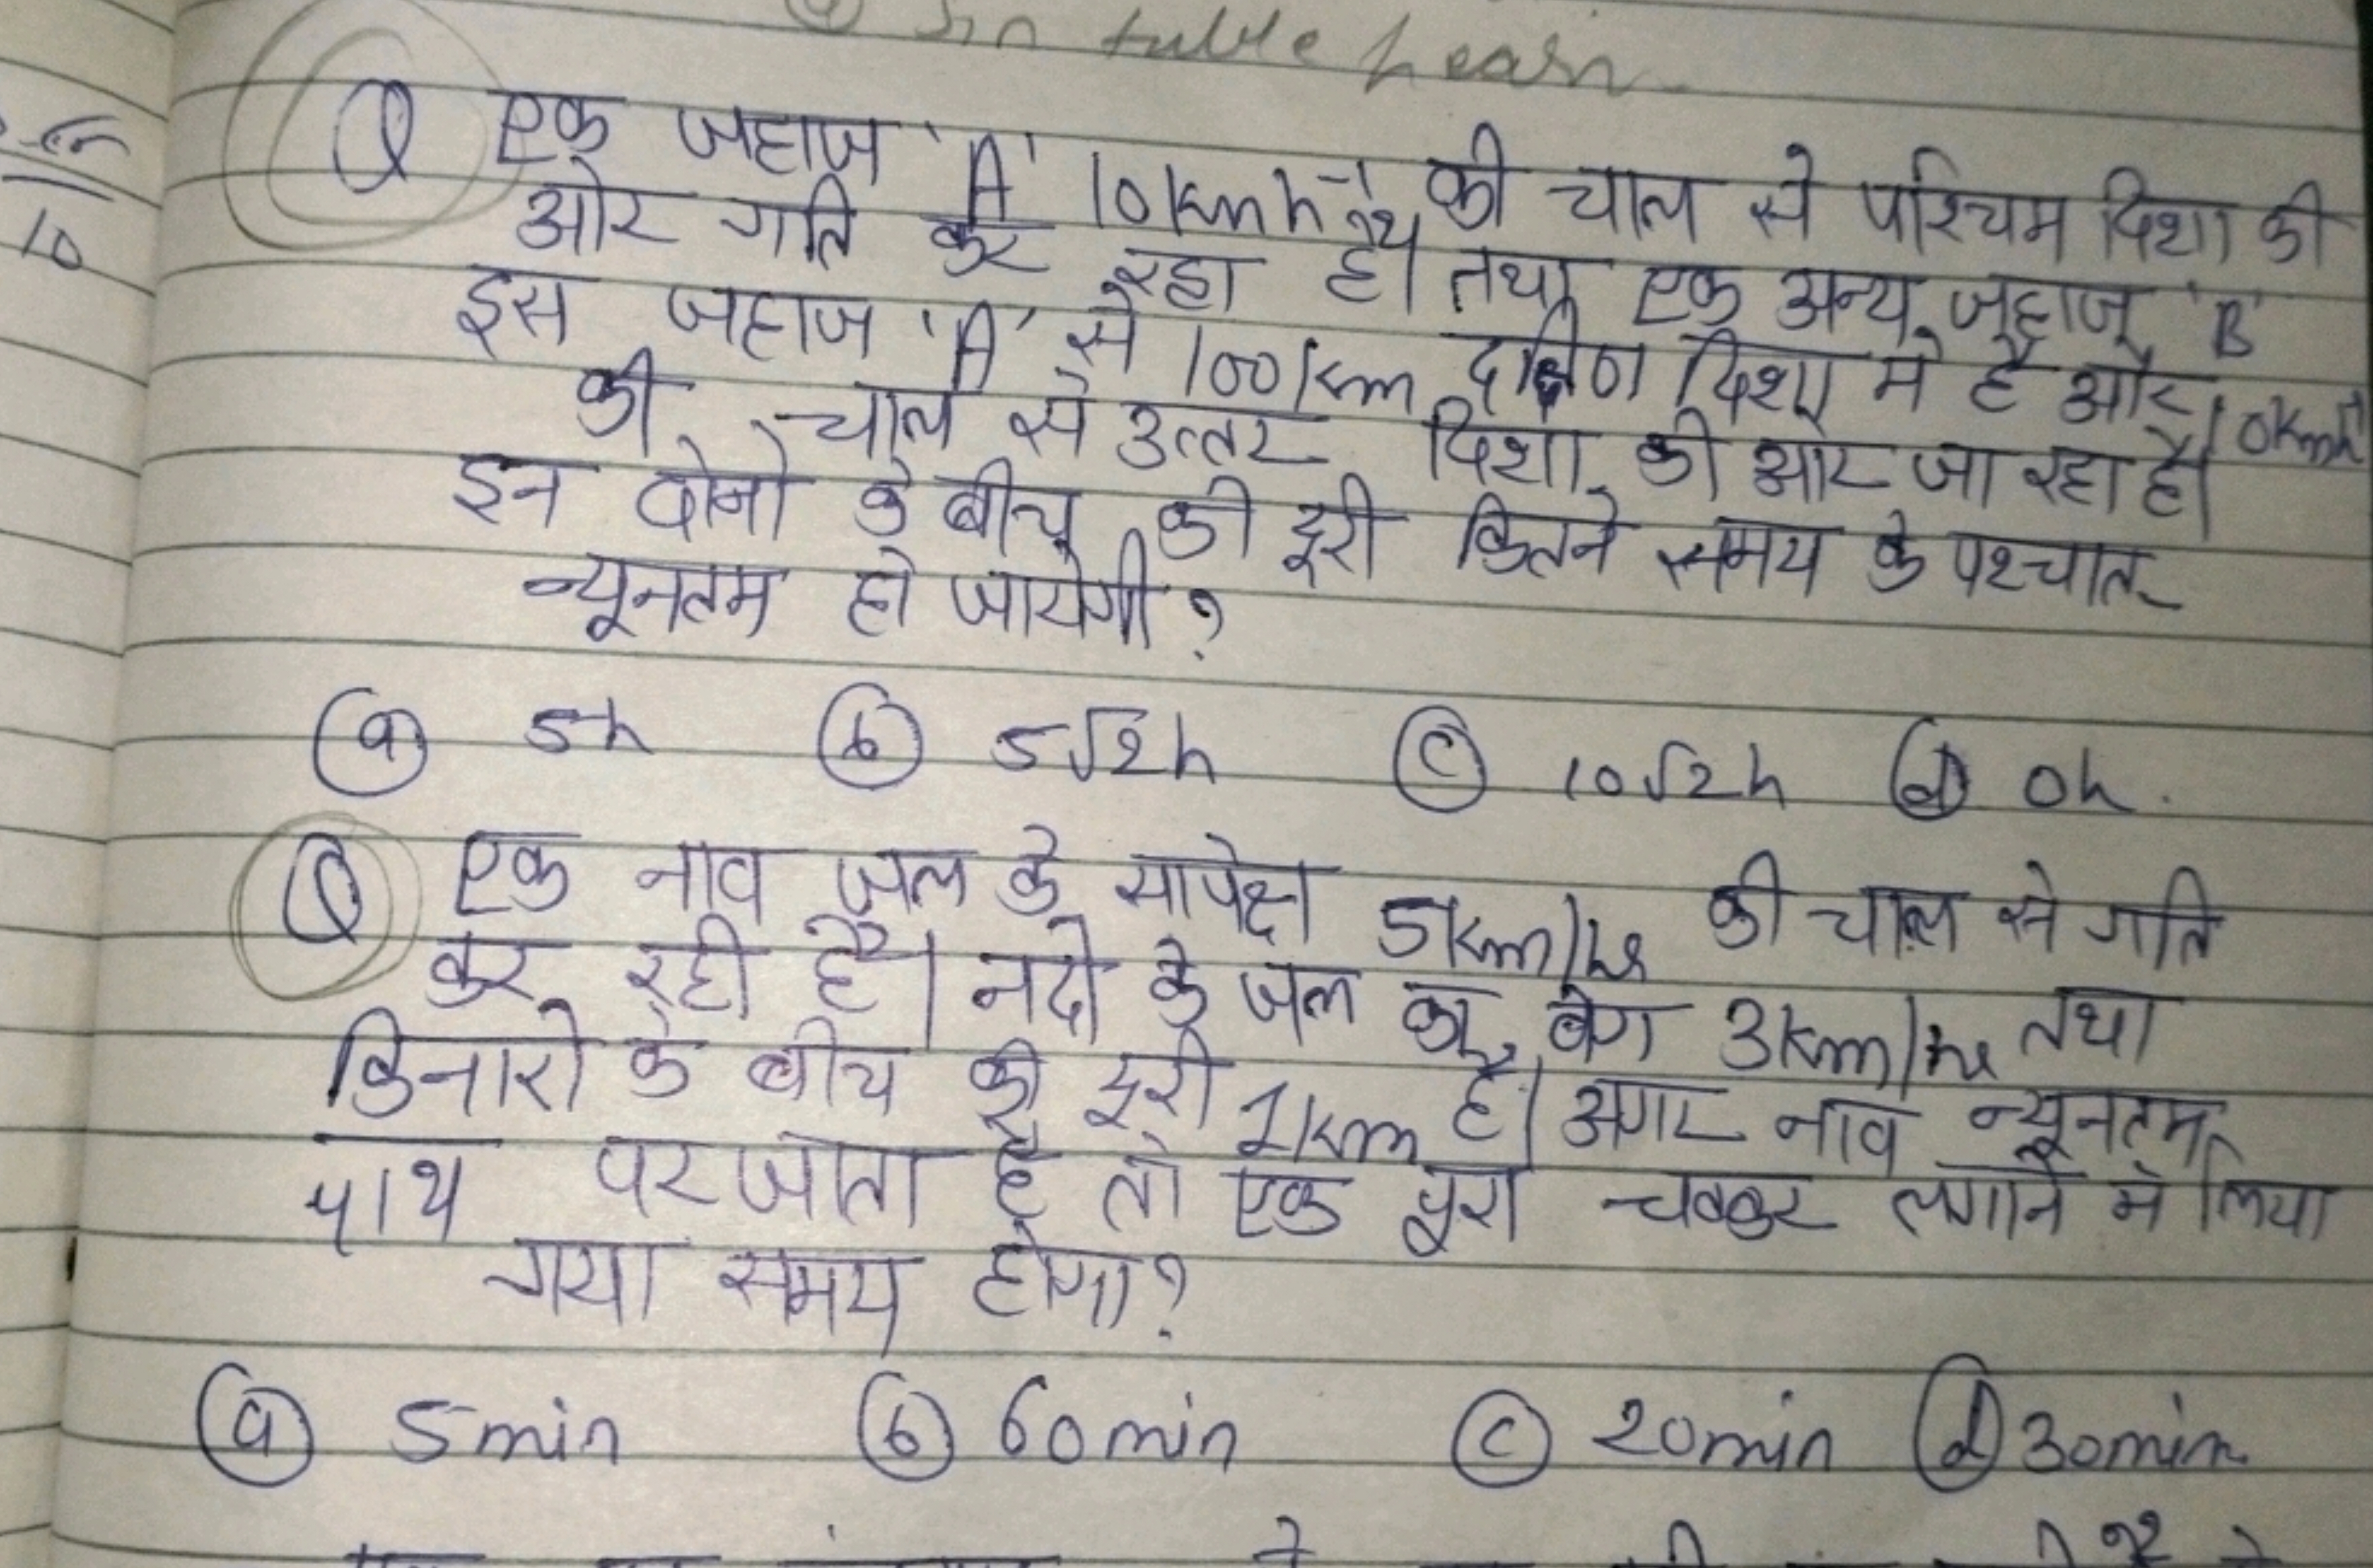 In table Learn
10
Q एक जहाज 'A' 10kmh⁻¹ की चाल से पश्चिम दिशा की
ओर गति कर रहा है। तथा एक अन्य जहाज 'B'
इस जहाज 'A' से 100km दक्षिण दिशा में है और 10kmh⁻¹
की चाल से उत्तर दिशा की ओर जा रहा है।
इन दोनो के बीच की दूरी कितने समय के पश्चात
न्यूनतम हो जायेगी?
(a) 5h (b) 5√2h (c) 10√2h (d) 0h.
Q एक नाव जल के सापेक्ष 5km/hr की चाल से गति
कर रही है। नदी के जल का वेग 3km/hr तथा
किनारो के बीच की दूरी 1km है। अगर नाव न्यूनतम
पाथ पर जाता है तो एक पूरा चक्कर लगाने में लिया
गया समय होगा?
(a) 5min (b) 60min (c) 20min (d) 30min